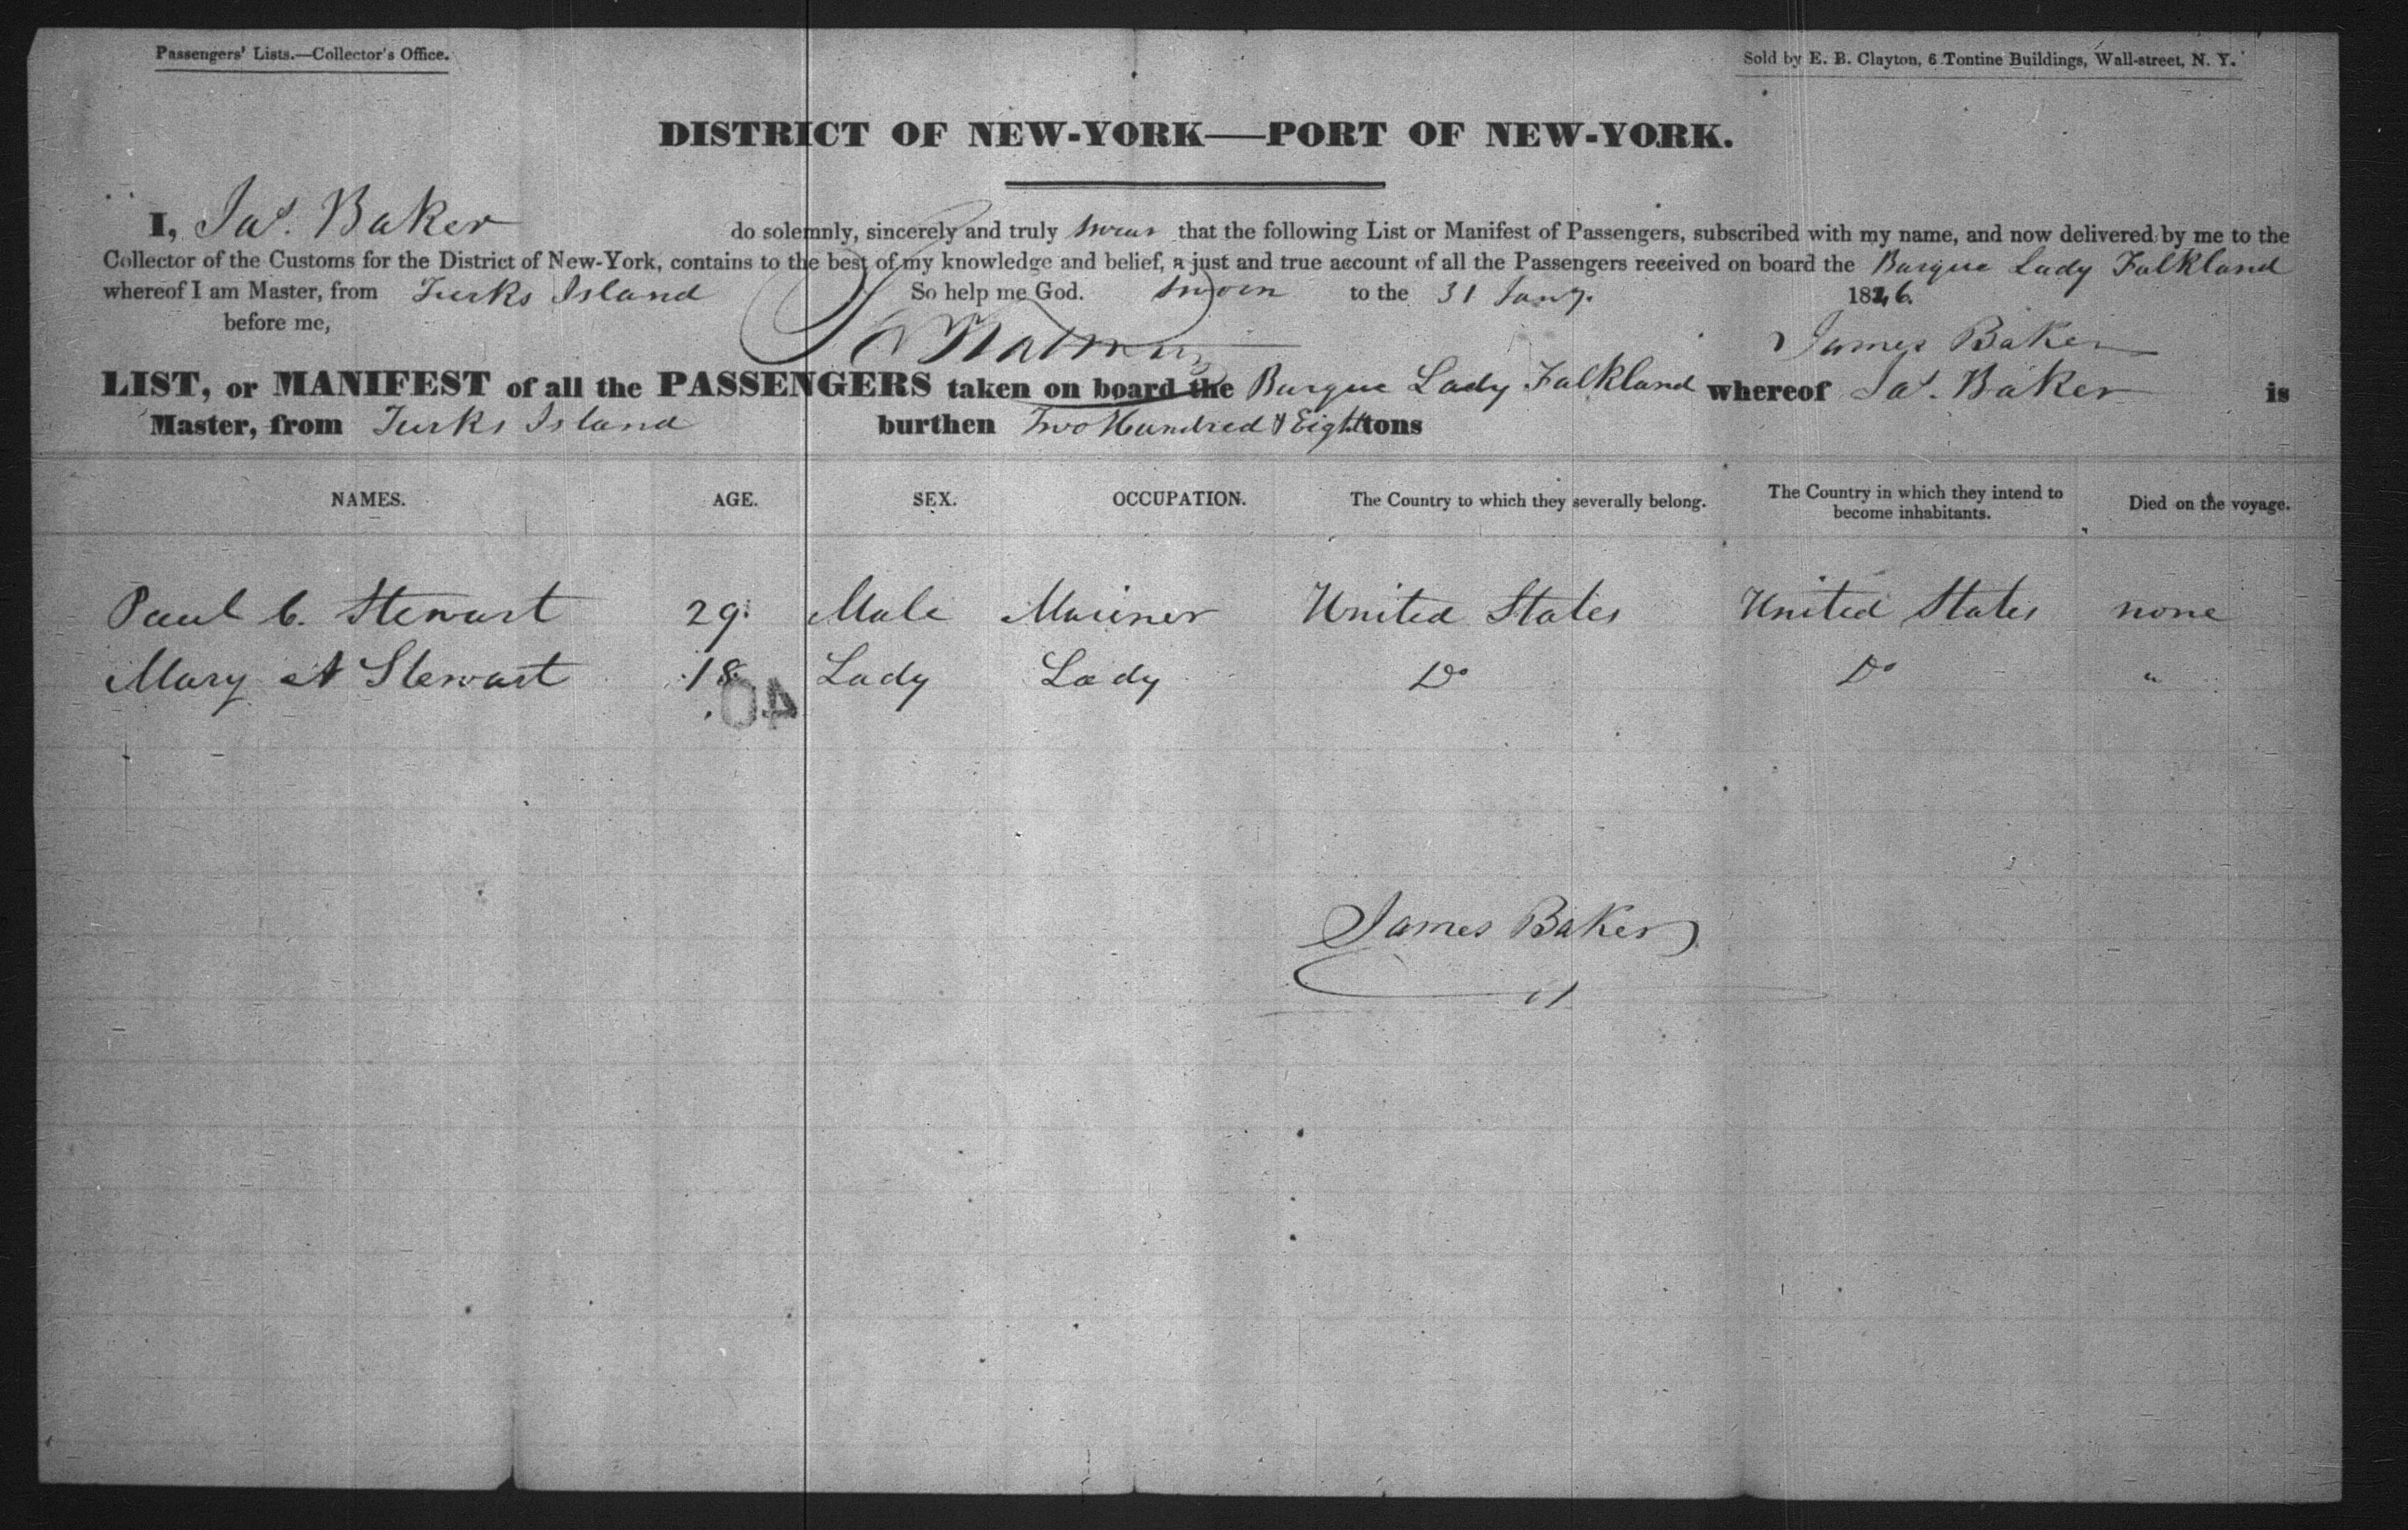 Passengers' Lists.—Collector's Office.
Sold by E. B. Clayton, 6 Tontine Buildings, Wall-street, N. Y.
DISTRICT OF NEW-YORK——PORT OF NEW-YORK.
I, Jas. Baker do solemnly, sincerely and truly swear that the following List or Manifest of Passengers, subscribed with my name, and now delivered by me to the
Collector of the Customs for the District of New-York, contains to the best of my knowledge and belief, a just and true account of all the Passengers received on board the Barque Lady Falkland
whereof I am Master, from Turks Island So help me God. Sworn to the 31 Jany. 1846.
before me,
James Baker
LIST, or MANIFEST of all the PASSENGERS taken on board the Barque Lady Falkland whereof Jas. Baker is
Master, from Turks Island burthen Two Hundred & Eight tons
NAMES. AGE. SEX. OCCUPATION. The Country to which they severally belong. The Country in which they intend to become inhabitants. Died on the voyage.
Paul C. Stewart 29 Male Mariner United States United States none
Mary A Stewart 18 Lady Lady Do Do "
40
James Baker